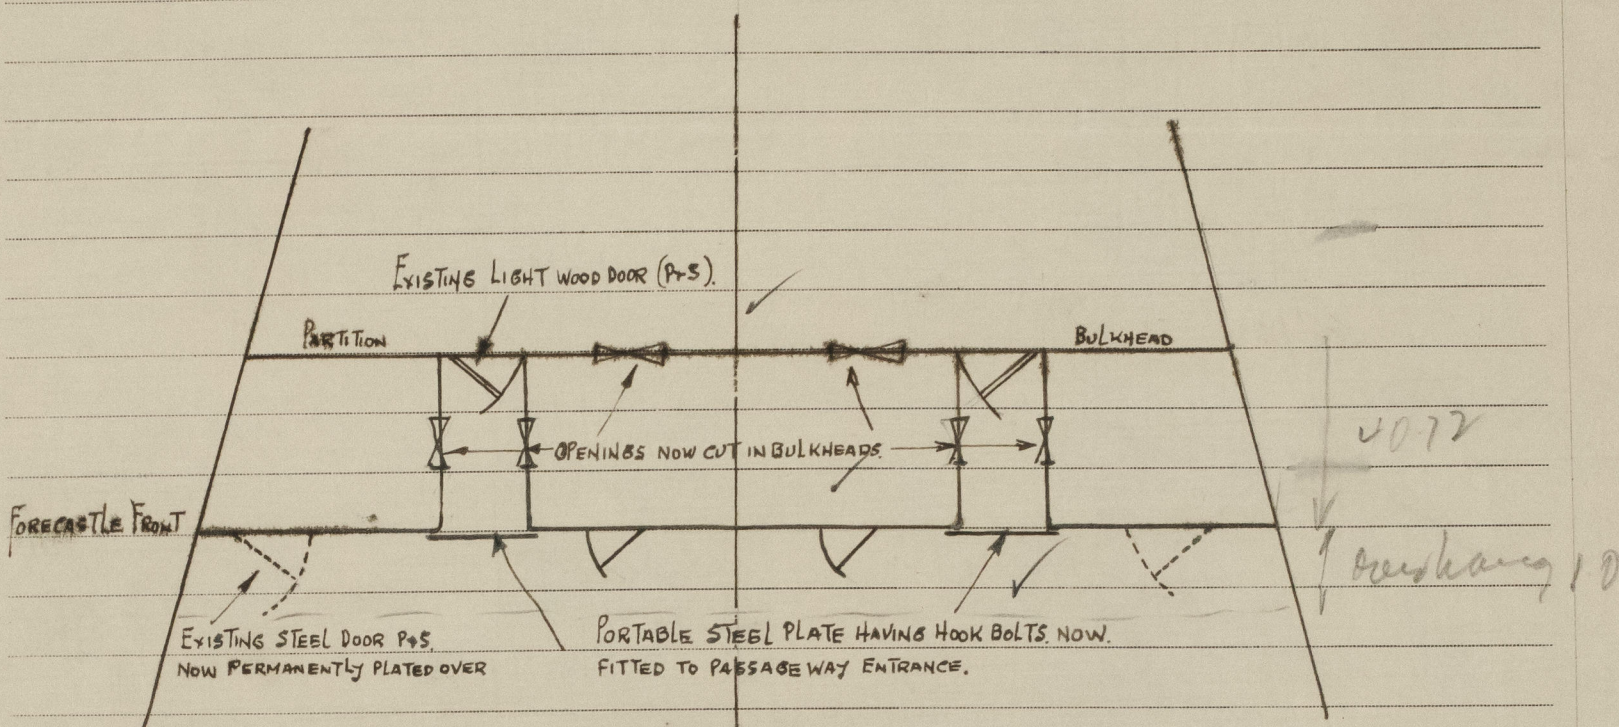 EXISTING LIGHT WOOD DOOR (P+S).
PARTITION
BULKHEAD
OPENINGS NOW CUT IN BULKHEADS.
FORECASTLE FRONT
overhang
EXISTING STEEL DOOR P+S.
NOW PERMANENTLY PLATED OVER
PORTABLE STEEL PLATE HAVING HOOK BOLTS. NOW.
FITTED TO PASSAGE WAY ENTRANCE.